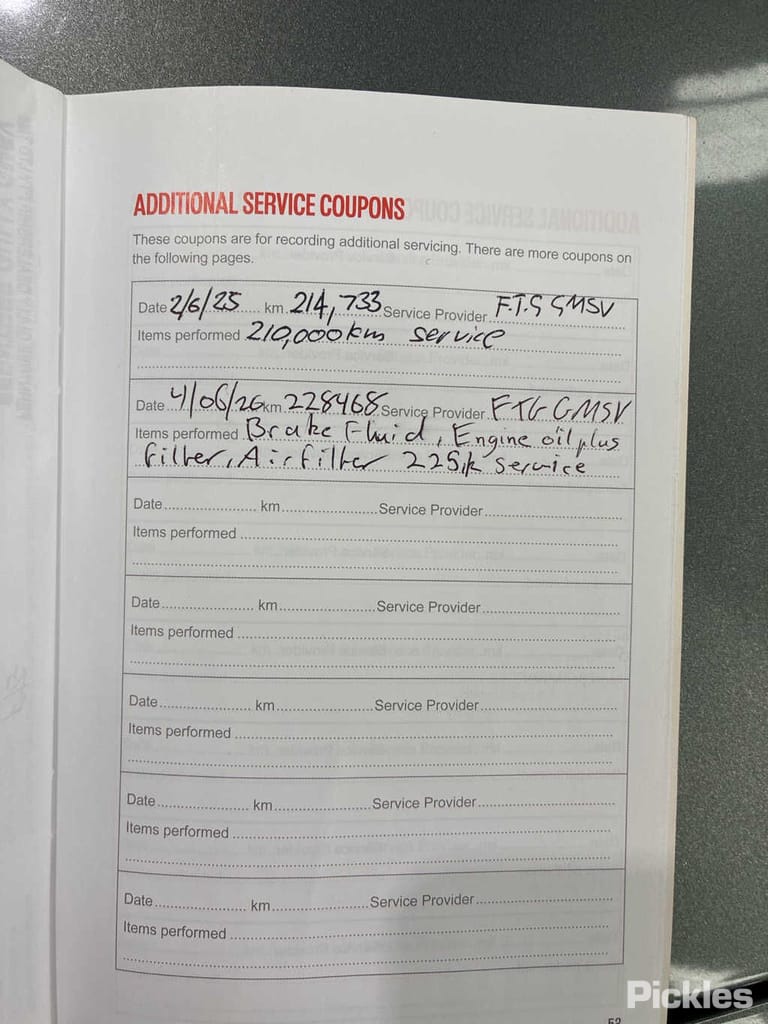 ADDITIONAL SERVICE COUPONS
These coupons are for recording additional servicing. There are more coupons on
the following pages.
Date 2/6/25 km 214,733 Service Provider F.T.G GMSV
Items performed 210,000km service
Date 4/06/26 km 228468 Service Provider FTG GMSV
Items performed Brake Fluid, Engine oil plus
filter, Air filter 225,k service
Date km Service Provider
Items performed
Date km Service Provider
Items performed
Date km Service Provider
Items performed
Date km Service Provider
Items performed
Date km Service Provider
Items performed
Pickles